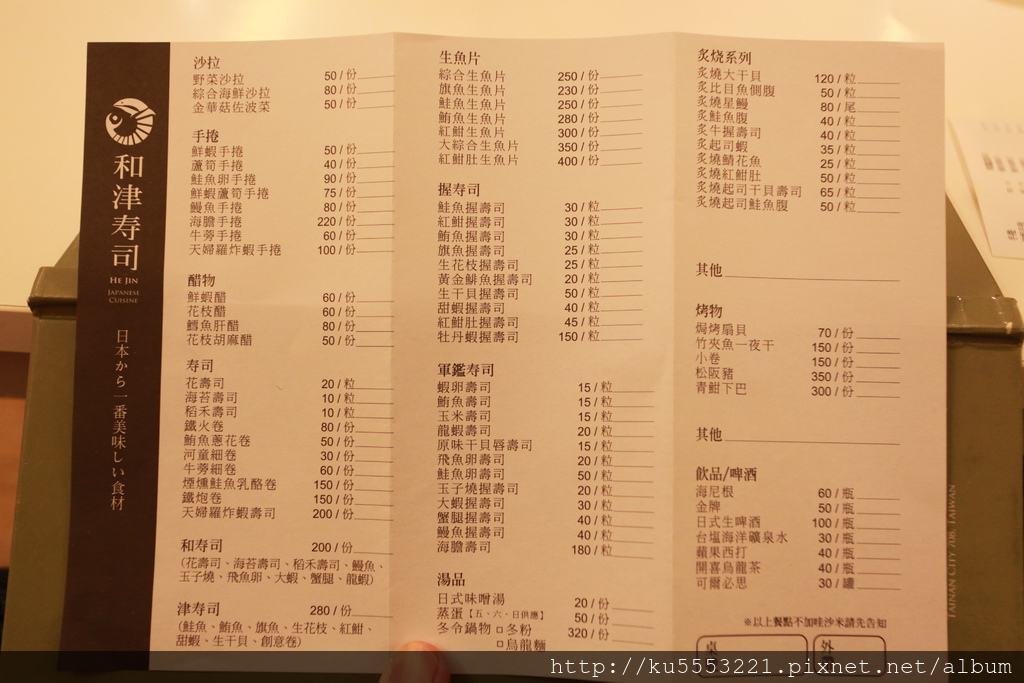 和津寿司
HE JIN
JAPANESE
CUISINE
日本から一番美味しい食材
沙拉
野菜沙拉 50 / 份
綜合海鮮沙拉 80 / 份
金華菇佐波菜 50 / 份
手捲
鮮蝦手捲 50 / 份
蘆筍手捲 40 / 份
鮭魚卵手捲 90 / 份
鮮蝦蘆筍手捲 75 / 份
鰻魚手捲 80 / 份
海膽手捲 220 / 份
牛蒡手捲 60 / 份
天婦羅炸蝦手捲 100 / 份
醋物
鮮蝦醋 60 / 份
花枝醋 60 / 份
鱈魚肝醋 80 / 份
花枝胡麻醋 50 / 份
寿司
花壽司 20 / 粒
海苔壽司 10 / 粒
稻禾壽司 10 / 粒
鐵火卷 80 / 份
鮪魚蔥花卷 50 / 份
河童細卷 30 / 份
牛蒡細卷 60 / 份
煙燻鮭魚乳酪卷 150 / 份
鐵炮卷 150 / 份
天婦羅炸蝦壽司 200 / 份
和寿司 200 / 份
(花壽司、海苔壽司、稻禾壽司、鰻魚、
玉子燒、飛魚卵、大蝦、蟹腿、龍蝦)
津寿司 280 / 份
(鮭魚、鮪魚、旗魚、生花枝、紅魽、
甜蝦、生干貝、創意卷)
生魚片
綜合生魚片 250 / 份
旗魚生魚片 230 / 份
鮭魚生魚片 250 / 份
鮪魚生魚片 280 / 份
紅魽生魚片 300 / 份
大綜合生魚片 350 / 份
紅魽肚生魚片 400 / 份
握寿司
鮭魚握壽司 30 / 粒
紅魽握壽司 30 / 粒
鮪魚握壽司 30 / 粒
旗魚握壽司 25 / 粒
生花枝握壽司 25 / 粒
黃金鯡魚握壽司 20 / 粒
生干貝握壽司 50 / 粒
甜蝦握壽司 40 / 粒
紅魽肚握壽司 45 / 粒
牡丹蝦握壽司 150 / 粒
軍鑑寿司
蝦卵壽司 15 / 粒
鮪魚壽司 15 / 粒
玉米壽司 15 / 粒
龍蝦壽司 20 / 粒
原味干貝唇壽司 15 / 粒
飛魚卵壽司 20 / 粒
鮭魚卵壽司 50 / 粒
玉子燒握壽司 20 / 粒
大蝦握壽司 30 / 粒
蟹腿握壽司 40 / 粒
鰻魚握壽司 40 / 粒
海膽壽司 180 / 粒
湯品
日式味噌湯 20 / 份
蒸蛋【五、六、日供應】 50 / 份
冬令鍋物 □冬粉 320 / 份
□烏龍麵
炙烧系列
炙燒大干貝 120 / 粒
炙比目魚側腹 50 / 粒
炙燒星鰻 80 / 尾
炙鮭魚腹 40 / 粒
炙牛握壽司 40 / 粒
炙起司蝦 35 / 粒
炙燒鯖花魚 25 / 粒
炙燒紅魽肚 50 / 粒
炙燒起司干貝壽司 65 / 粒
炙燒起司鮭魚腹 50 / 粒
其他
烤物
焗烤扇貝 70 / 份
竹夾魚一夜干 150 / 份
小卷 150 / 份
松阪豬 350 / 份
青魽下巴 300 / 份
其他
飲品/啤酒
海尼根 60 / 瓶
金牌 50 / 瓶
日式生啤酒 100 / 瓶
台塩海洋礦泉水 30 / 瓶
蘋果西打 40 / 瓶
開喜烏龍茶 40 / 瓶
可爾必思 30 / 罐
※以上餐點不加哇沙米請先告知
桌
外
TAINAN CITY 708, TAIWAN
http://ku5553221.pixnet.net/album